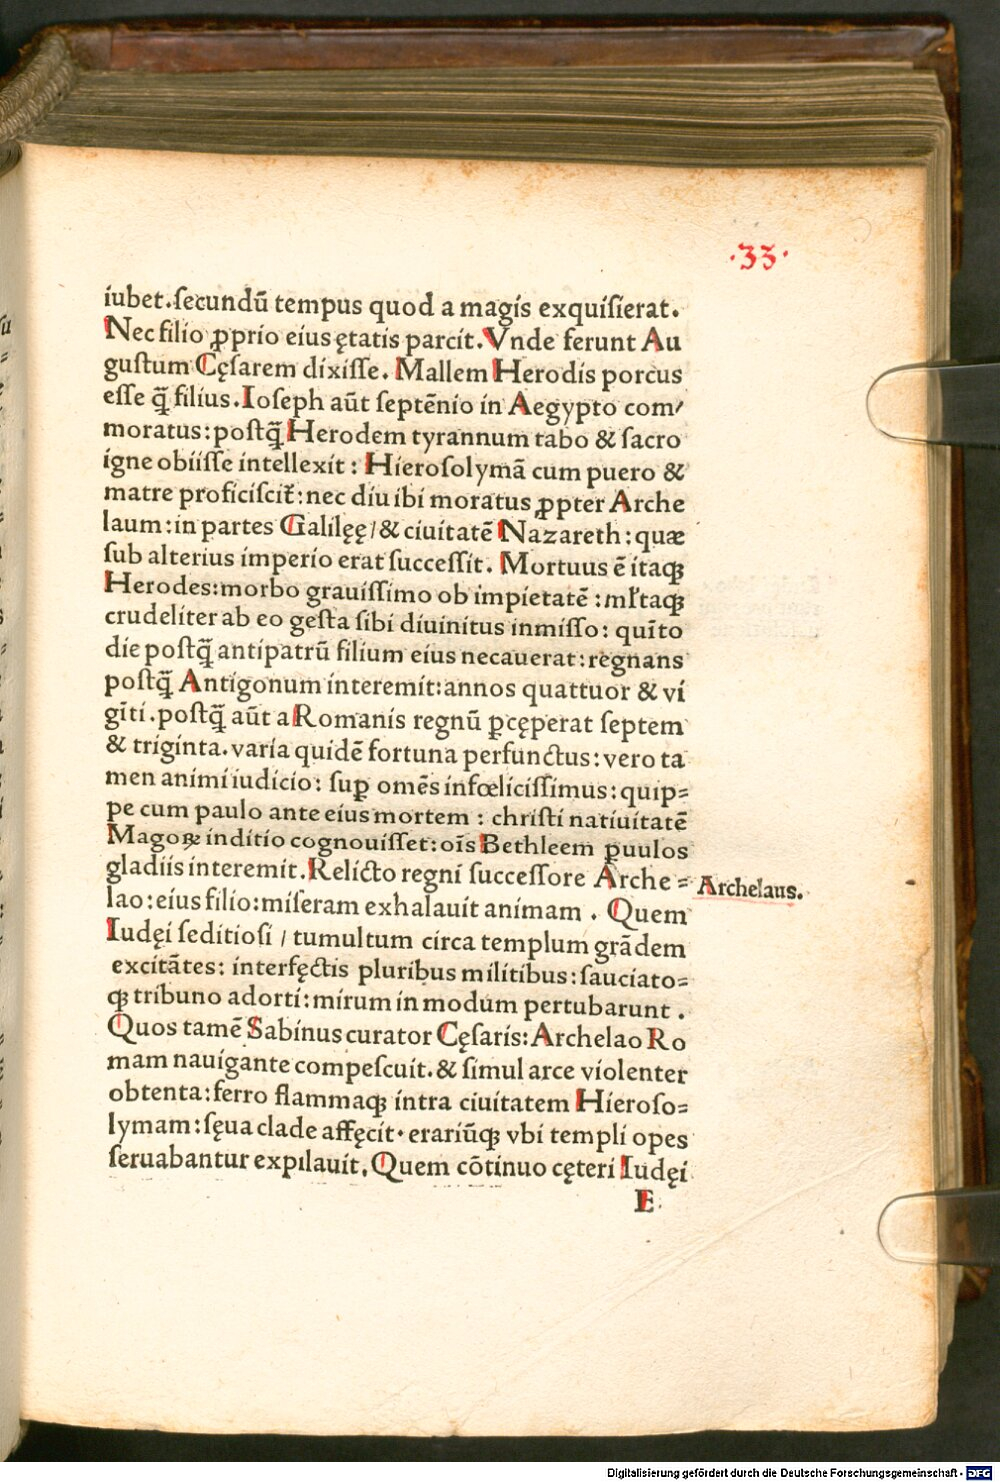 ·33·
iubet.ſecundū tempus quod a magis exquiſierat.
Nec filio ꝓprio eius ętatis parcit.Vnde ferunt Au
guſtum Cęſarem dixiſſe. Mallem Herodis porcus
eſſe q̄ filius.Ioſeph aūt ſeptēnio in Aegypto com/
moratus:poſtq̄ Herodem tyrannum tabo & ſacro
igne obiiſſe intellexit: Hieroſolymā cum puero &
matre proficiſcit᷑:nec diu ibi moratus ꝓpter Arche
laum:in partes Galilęę/& ciuitatē Nazareth:quæ
ſub alterius imperio erat ſucceſſit. Mortuus ē itaqꝫ
Herodes:morbo grauiſſimo ob impietatē:ml̄taqꝫ
crudeliter ab eo geſta ſibi diuinitus inmiſſo: quīto
die poſtq̄ antipatrū filium eius necauerat:regnans
poſtq̄ Antigonum interemit:annos quattuor & vi
gīti.poſtq̄ aūt a Romanis regnū ꝑcęperat ſeptem
& triginta.varia quidē fortuna perfunctus:vero ta
men animi iudicio: ſuꝑ omēs infœliciſſimus:quip=
pe cum paulo ante eius mortem: chriſti natiuitatē
Magoꝝ inditio cognouiſſet:oīs Bethleem ꝑuulos
gladiis interemit.Relicto regni ſucceſſore Arche=
Archelaus.
lao:eius filio:miſeram exhalauit animam. Quem
Iudęi ſeditioſi / tumultum circa templum grādem
excitātes: interfęctis pluribus militibus:ſauciato=
qꝫ tribuno adorti:mirum in modum pertubarunt.
Quos tamē Sabinus curator Cęſaris:Archelao Ro
mam nauigante compeſcuit.& ſimul arce violenter
obtenta:ferro flammaqꝫ intra ciuitatem Hieroſo=
lymam:ſęua clade affęcit·erariūqꝫ vbi templi opes
ſeruabantur expilauit.Quem cōtinuo cęteri Iudęi
E
Digitalisierung gefördert durch die Deutsche Forschungsgemeinschaft - DFG